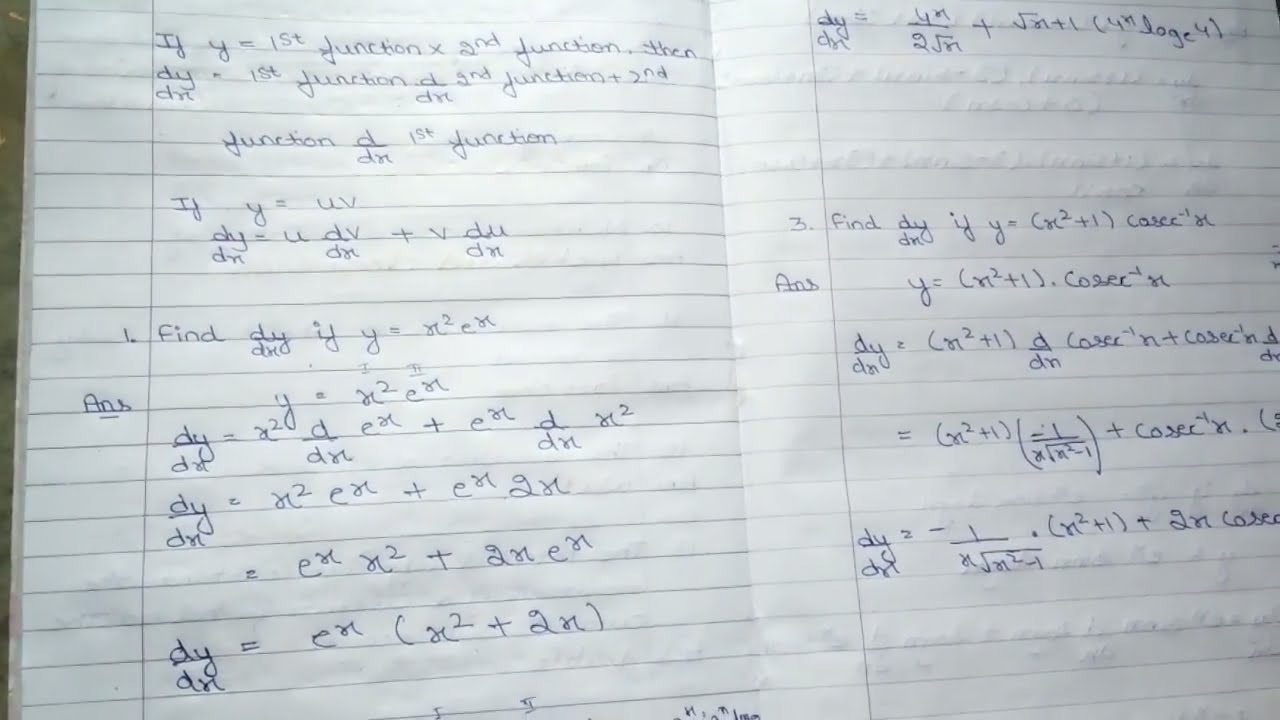 If y = 1st function × 2nd function, then
dy/dx = 1st function d/dx 2nd function + 2nd
function d/dx 1st function
If y = uv
dy/dx = u dv/dx + v du/dx
1. Find dy/dx if y = x² eˣ
I II
Ans y = x² eˣ
dy/dx = x² d/dx eˣ + eˣ d/dx x²
dy/dx = x² eˣ + eˣ 2x
= eˣ x² + 2x eˣ
dy/dx = eˣ (x² + 2x)
I II
dy/dx = 4ˣ/2√x + √x+1 (4ˣ loge4)
3. Find dy/dx if y = (x²+1) cosec⁻¹x
Ans y = (x²+1). cosec⁻¹x
dy/dx = (x²+1) d/dx cosec⁻¹x + cosec⁻¹x d/dx
= (x²+1) (-1/x√x²-1) + cosec⁻¹x . (
dy/dx = - 1/x√x²-1 . (x²+1) + 2x cosec